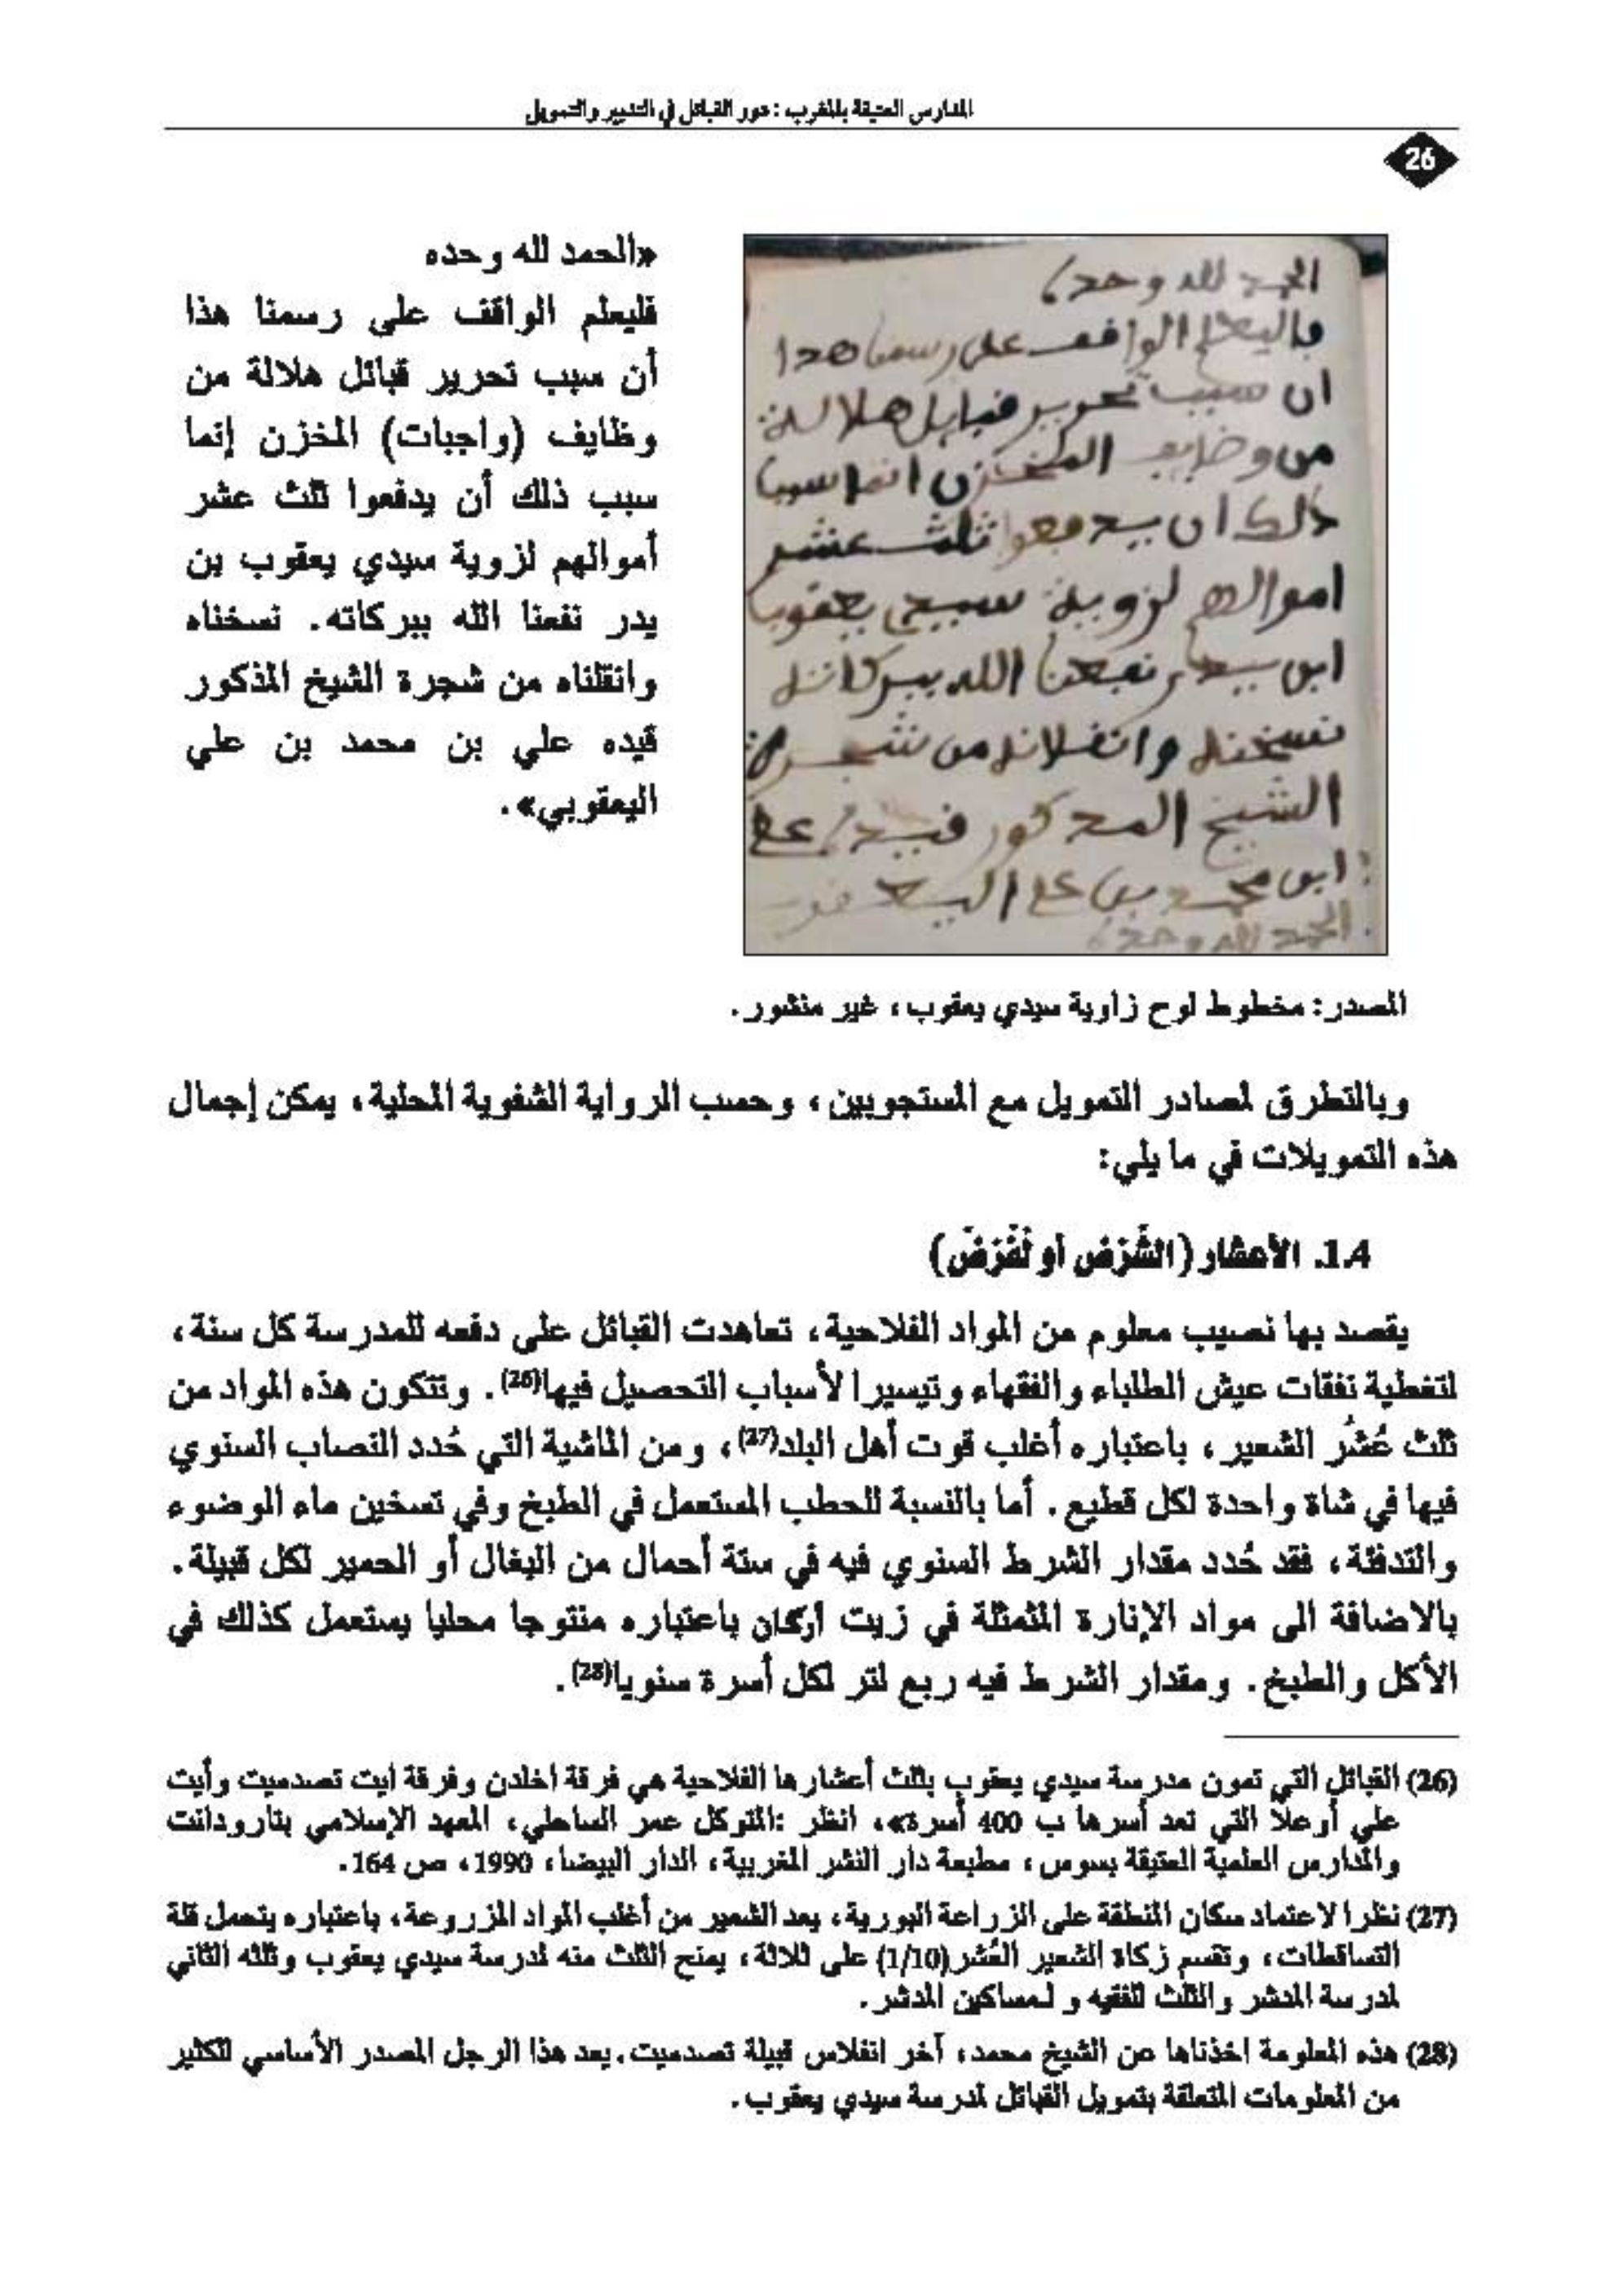 المدارس العتيقة بالمغرب : دور القبائل في التدبير والتمويل
26
الحمد لله وحده
فاليعلم الواقف على رسمنا هدا
ان سبب تحرير قبايل هلالة
من وضايف المخزن انما سبب
ذلك ان يدفعوا ثلث عشر
اموالهم لزوية سيدي يعقوب
ابن يدر نفعنا الله ببركاته
نسخنه وانقلانه من شجرة
الشيخ المدكور قيده علي
ابن محمد بن علي اليعقوبي
الحمد لله وحده
«الحمد لله وحده
فليعلم الواقف على رسمنا هذا
أن سبب تحرير قبائل هلالة من
وظايف (واجبات) المخزن إنما
سبب ذلك أن يدفعوا ثلث عشر
أموالهم لزوية سيدي يعقوب بن
يدر نفعنا الله ببركاته. نسخناه
وانقلناه من شجرة الشيخ المذكور
قيده علي بن محمد بن علي
اليعقوبي».
المصدر: مخطوط لوح زاوية سيدي يعقوب، غير منشور.
وبالتطرق لمصادر التمويل مع المستجوبين، وحسب الرواية الشفوية المحلية، يمكن إجمال
هذه التمويلات في ما يلي:
1.4. الأعشار (الشَّرْض أو لْفْرْضْ)
يقصد بها نصيب معلوم من المواد الفلاحية، تعاهدت القبائل على دفعه للمدرسة كل سنة،
لتغطية نفقات عيش الطلباء والفقهاء وتيسيرا لأسباب التحصيل فيها(26). وتتكون هذه المواد من
ثلث عُشُر الشعير، باعتباره أغلب قوت أهل البلد(27)، ومن الماشية التي حُدد النصاب السنوي
فيها في شاة واحدة لكل قطيع. أما بالنسبة للحطب المستعمل في الطبخ وفي تسخين ماء الوضوء
والتدفئة، فقد حُدد مقدار الشرط السنوي فيه في ستة أحمال من البغال أو الحمير لكل قبيلة.
بالاضافة الى مواد الإنارة المتمثلة في زيت أركان باعتباره منتوجا محليا يستعمل كذلك في
الأكل والطبخ. ومقدار الشرط فيه ربع لتر لكل أسرة سنويا(28).
(26) القبائل التي تمون مدرسة سيدي يعقوب بثلث أعشارها الفلاحية هي فرقة اخلدن وفرقة ايت تصدميت وأيت
علي أوعلا التي تعد أسرها ب 400 أسرة»، انظر :المتوكل عمر الساحلي، المعهد الإسلامي بتارودانت
والمدارس العلمية العتيقة بسوس، مطبعة دار النشر المغربية، الدار البيضا، 1990، ص 164.
(27) نظرا لاعتماد سكان المنطقة على الزراعة البورية، يعد الشعير من أغلب المواد المزروعة، باعتباره يتحمل قلة
التساقطات، وتقسم زكاة الشعير العُشر(1/10) على ثلاثة، يمنح الثلث منه لمدرسة سيدي يعقوب وثلثه الثاني
لمدرسة المدشر والثلث للفقيه و لمساكين المدشر.
(28) هذه المعلومة اخذناها عن الشيخ محمد، آخر انفلاس قبيلة تصدميت.يعد هذا الرجل المصدر الأساسي للكثير
من المعلومات المتعلقة بتمويل القبائل لمدرسة سيدي يعقوب.